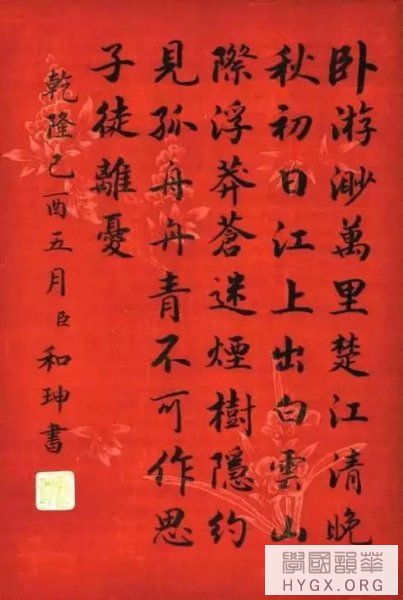 卧游渺萬里楚江清晚
秋初日江上出白雲山
際浮莽蒼迷煙樹隱約
見孤舟丹青不可作思
子徒離憂
乾隆己酉五月臣和珅書
華韻國學
HYGX.ORG